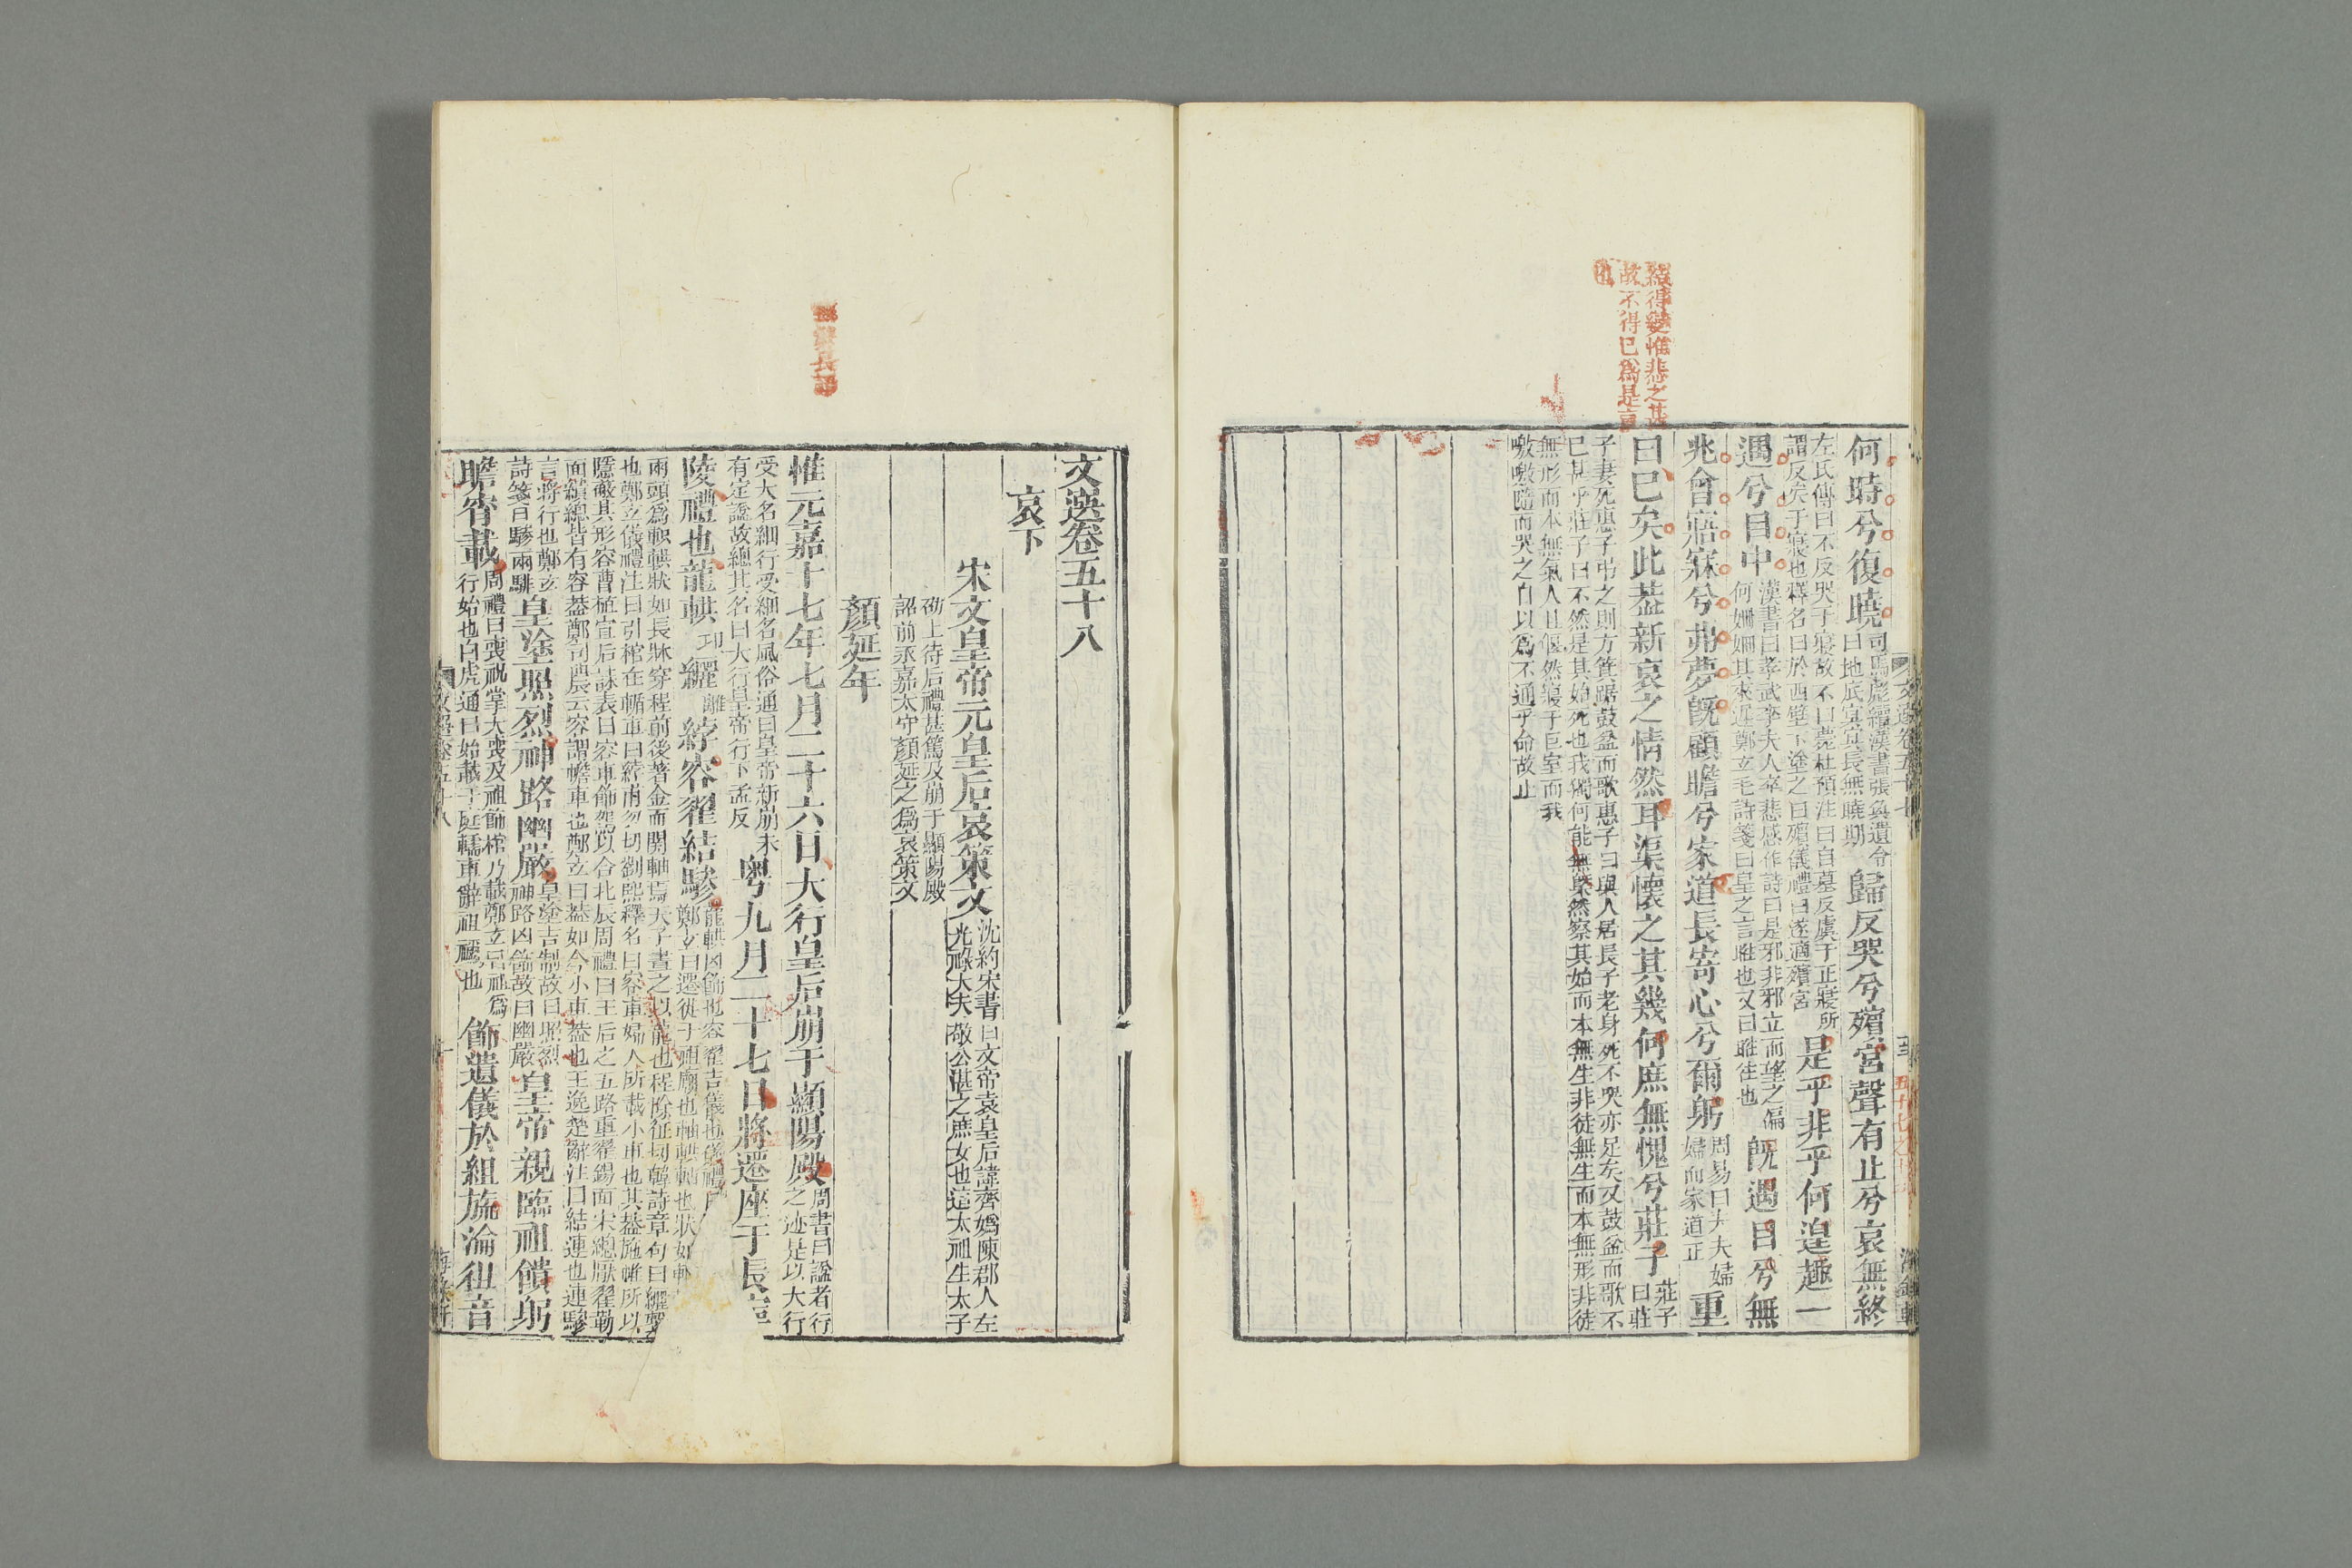 何時兮復曉司馬彪續漢書張奐遺令曰地底冥冥長無曉期歸反哭兮殯宮聲有止兮哀無終
左氏傳曰不反哭于寢故不曰薨杜預注曰自墓反虞于正寢所謂反哭于寢也釋名曰於西壁下塗之曰殯儀禮曰遂適殯宮是乎非乎何遑趣一
遇兮目中漢書曰孝武李夫人卒悲感作詩曰是邪非邪立而望之偏何姍姍其來遲鄭玄毛詩箋曰皇之言暀也又曰暀往也既遇目兮無
兆曾寤寐兮弗夢旣顧瞻兮家道長寄心兮爾躬周易曰夫夫婦婦而家道正重
曰已矣此蓋新哀之情然耳渠懷之其幾何庶無愧兮莊子莊子曰莊
子妻死惠子弔之則方箕踞鼓盆而歌惠子曰與人居長子老身死不哭亦足矣又鼓盆而歌不
已甚乎莊子曰不然是其始死也我獨何能無槩然察其始而本無生非徒無生而本無形非徒
無形而本無氣人且偃然寢于巨室而我
噭噭隨而哭之自以爲不通乎命故止
文選卷五十七
文選卷五十八
哀下
宋文皇帝元皇后哀策文沈約宋書曰文帝袁皇后諱齊嬀陳郡人左光祿大夫敬公湛之庶女也適太祖生太子
劭上待后禮甚篤及崩于顯陽殿
詔前永嘉太守顏延之爲哀策文
顏延年
惟元嘉十七年七月二十六日大行皇后崩于顯陽殿周書曰謚者行之迹是以大行
受大名細行受細名風俗通曰皇帝新崩未有定謚故總其名曰大行皇帝行下孟反粵九月二十七日將遷座于長寧
陵禮也龍輁卭纚離綍容翟結驂
兩頭爲軹輁狀如長牀穿桯前後著金而關軸焉天子畫之以龍也桯餘征切韓詩章句曰纚繫
也鄭玄儀禮注曰引棺在輴車曰綍甫勿切劉熙釋名曰容車婦人所載小車也其蓋施帷所以
隱蔽其形容曹植宣后誄表曰容車飾駕以合北辰周禮曰王后之五路重翟錫面朱總厭翟勒
面繢總皆有容蓋鄭司農云容謂幨車也鄭玄曰蓋如今小車蓋也王逸楚辭注曰結連也連驂
言將行也鄭玄詩箋曰驂兩騑皇塗昭烈神路幽嚴皇塗吉制故曰昭烈神路凶飾故曰幽嚴皇帝親臨祖饋躬
瞻宵載周禮曰喪祝掌大喪及祖飾棺乃載鄭玄曰祖爲行始也白虎通曰始載于庭輴車辭祖禰也飾遺儀於組旒淪徂音